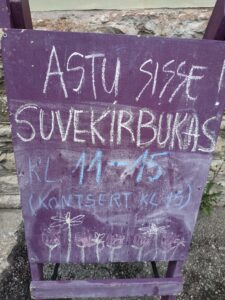 ASTU SISSE!
SUVEKIRBUKAS
KL 11-15
(KONTSERT KL 13)